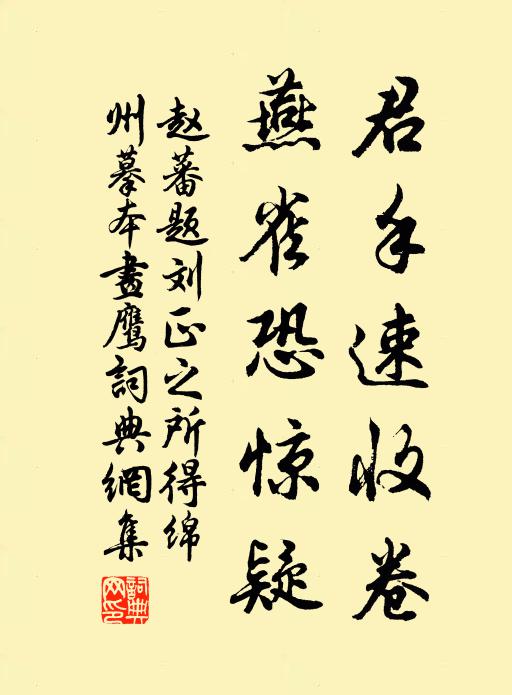 君手速收卷
燕雀恐惊疑
赵蕃题刘正之所得绵
州摹本畫鹰詞典網集
詞典
网印